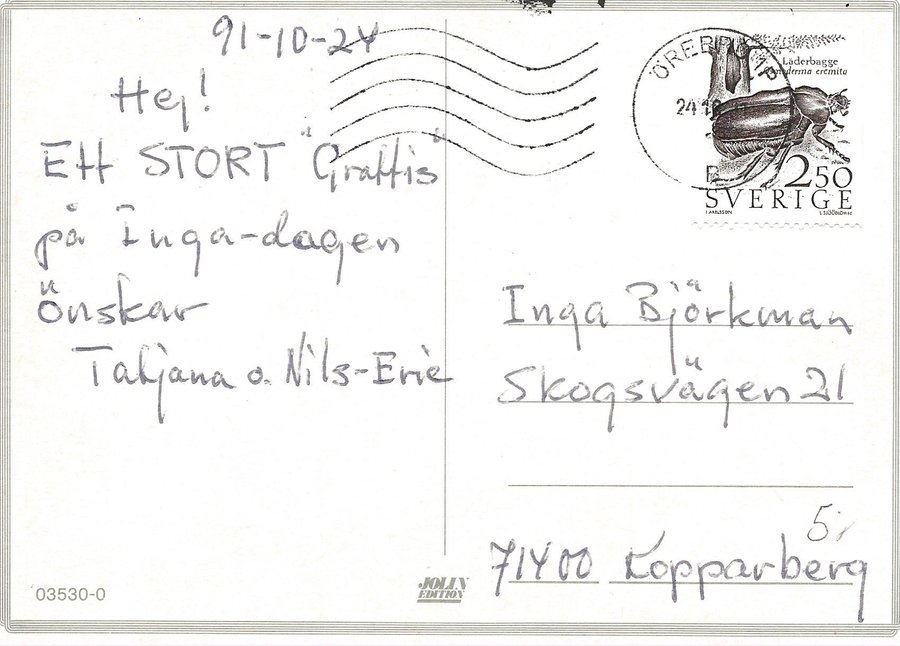 91-10-24
Hej!
Ett STORT "Grattis"
på Inga-dagen
Önskar
Tatjana o. Nils-Eric
03530-0
JOLIN
EDITION
ÖREBRO
24 10
Läderbagge
Osmoderma eremita
2.50
SVERIGE
Inga Björkman
Skogsvägen 21
71400 Kopparberg